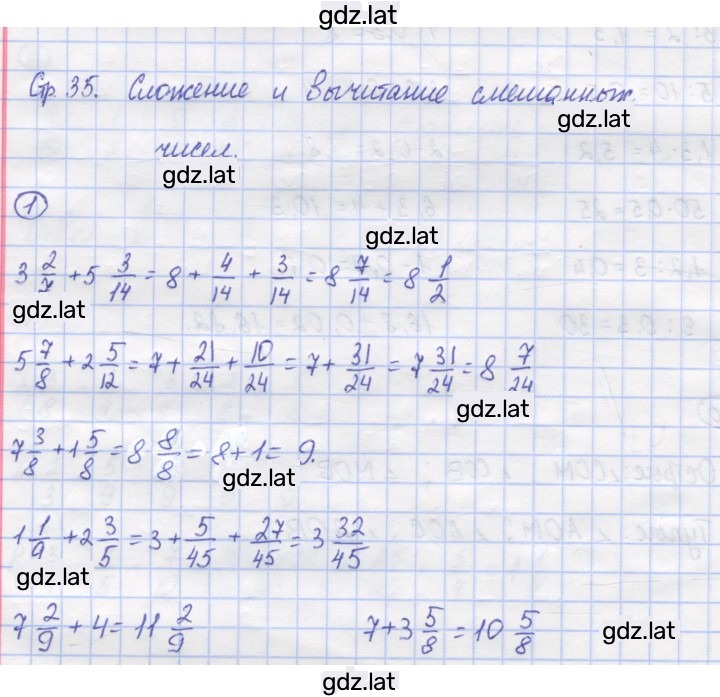 gdz.lat
Стр 35. Сложение и вычитание смешанных
gdz.lat
чисел.
gdz.lat
1
gdz.lat
3 2/7 + 5 3/14 = 8 + 4/14 + 3/14 = 8 7/14 = 8 1/2
gdz.lat
5 7/8 + 2 5/12 = 7 + 21/24 + 10/24 = 7 + 31/24 = 7 31/24 = 8 7/24
gdz.lat
7 3/8 + 1 5/8 = 8 8/8 = 8 + 1 = 9.
gdz.lat
1 1/9 + 2 3/5 = 3 + 5/45 + 27/45 = 3 32/45
gdz.lat
7 2/9 + 4 = 11 2/9 7 + 3 5/8 = 10 5/8
gdz.lat
gdz.lat